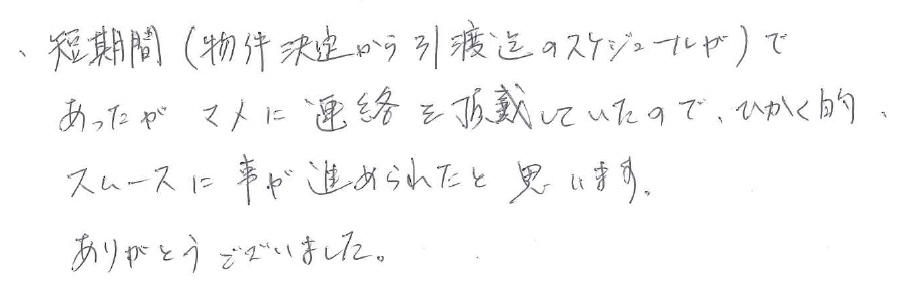 、短期間(物件決定から引渡迄のスケジュールが)で
あったがマメに連絡を頂戴していたので、ひかく的、
スムースに事が進められたと思います。
ありがとうございました。